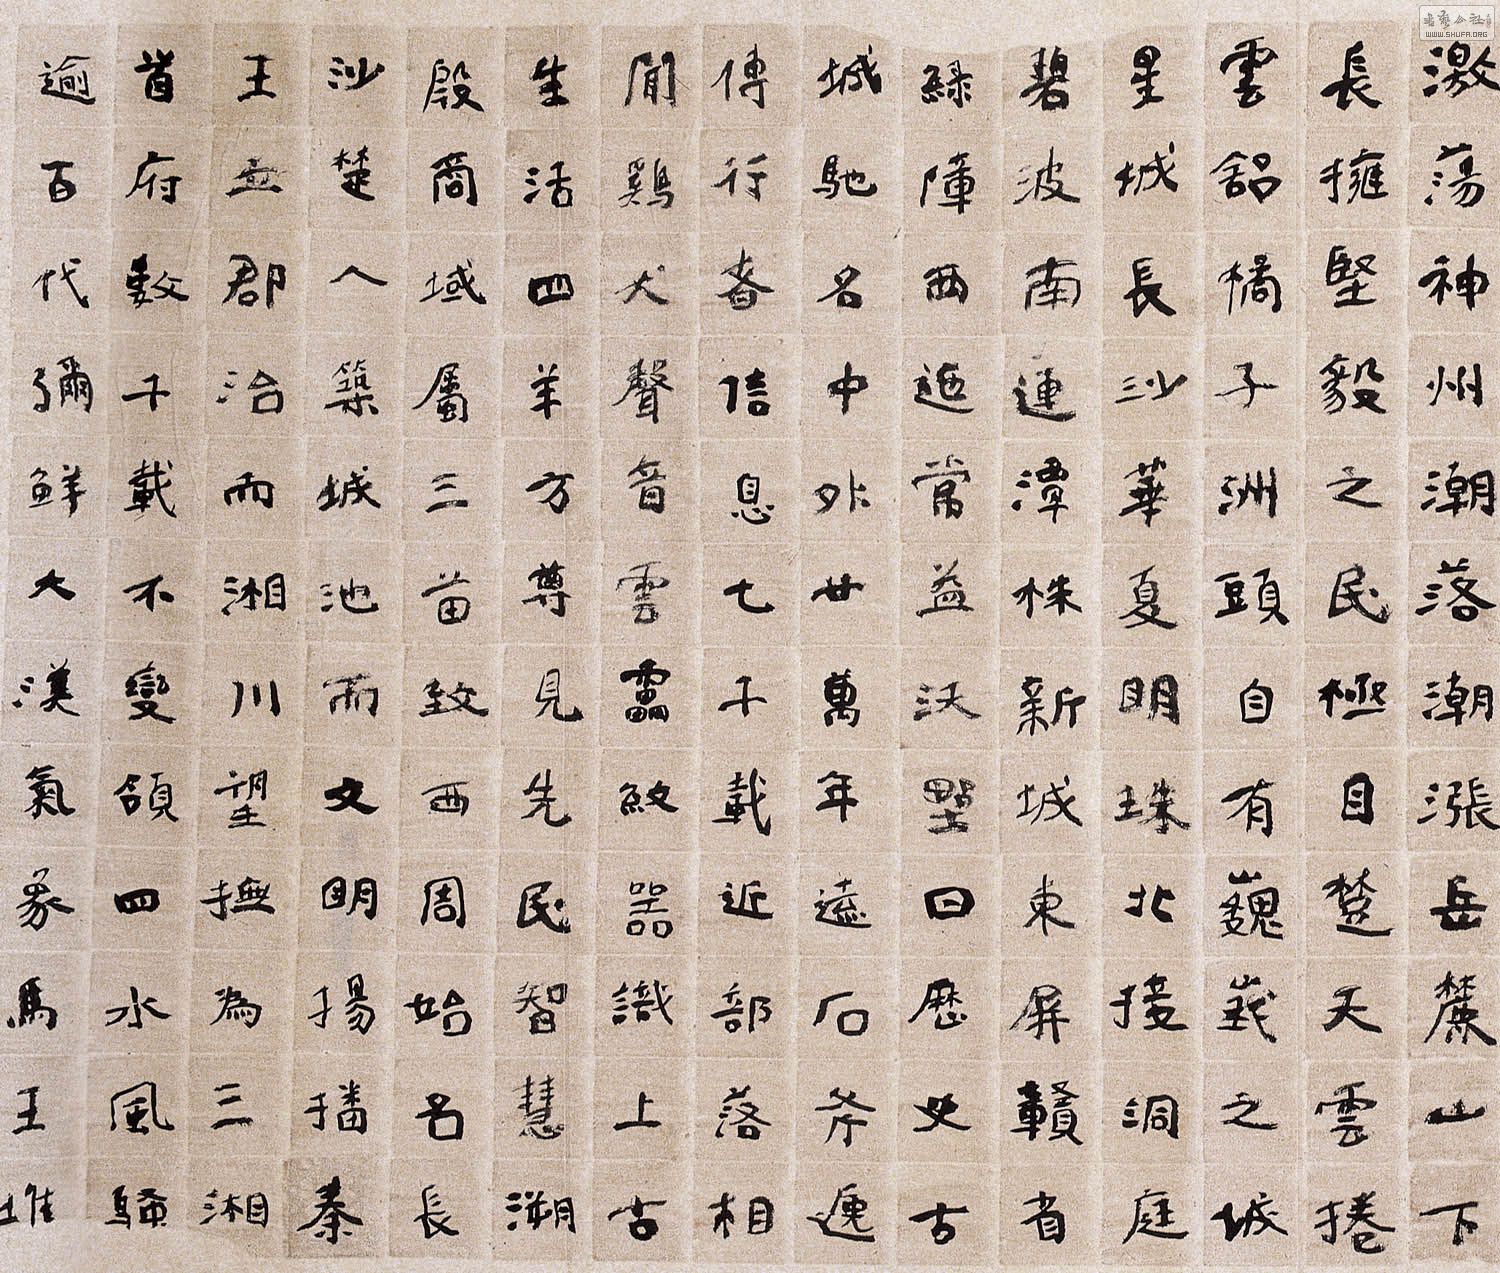 激荡神州潮落潮漲岳麓山下
長擁堅毅之民極目楚天雲捲
雲舒橘子洲頭自有巍峩之城
星城長沙華夏明珠北接洞庭
碧波南連潭株新城東屏贛省
綠障西迤常益沃墅曰歷史古
城馳名中外廿萬年遠石斧遞
傳行者信息七千載近部落相
聞鷄犬聲音雲靁敔器識上古
生活四羊方尊見先民智慧溯
殷商域屬三苗致西周始名長
沙楚人築城池而文明揚播秦
王立郡治而湘川望撫為三湘
首府數千載不變頜四水風騷
逾百代彌鮮大漢氣象馬王堆
書藝公社
WWW.SHUFA.ORG